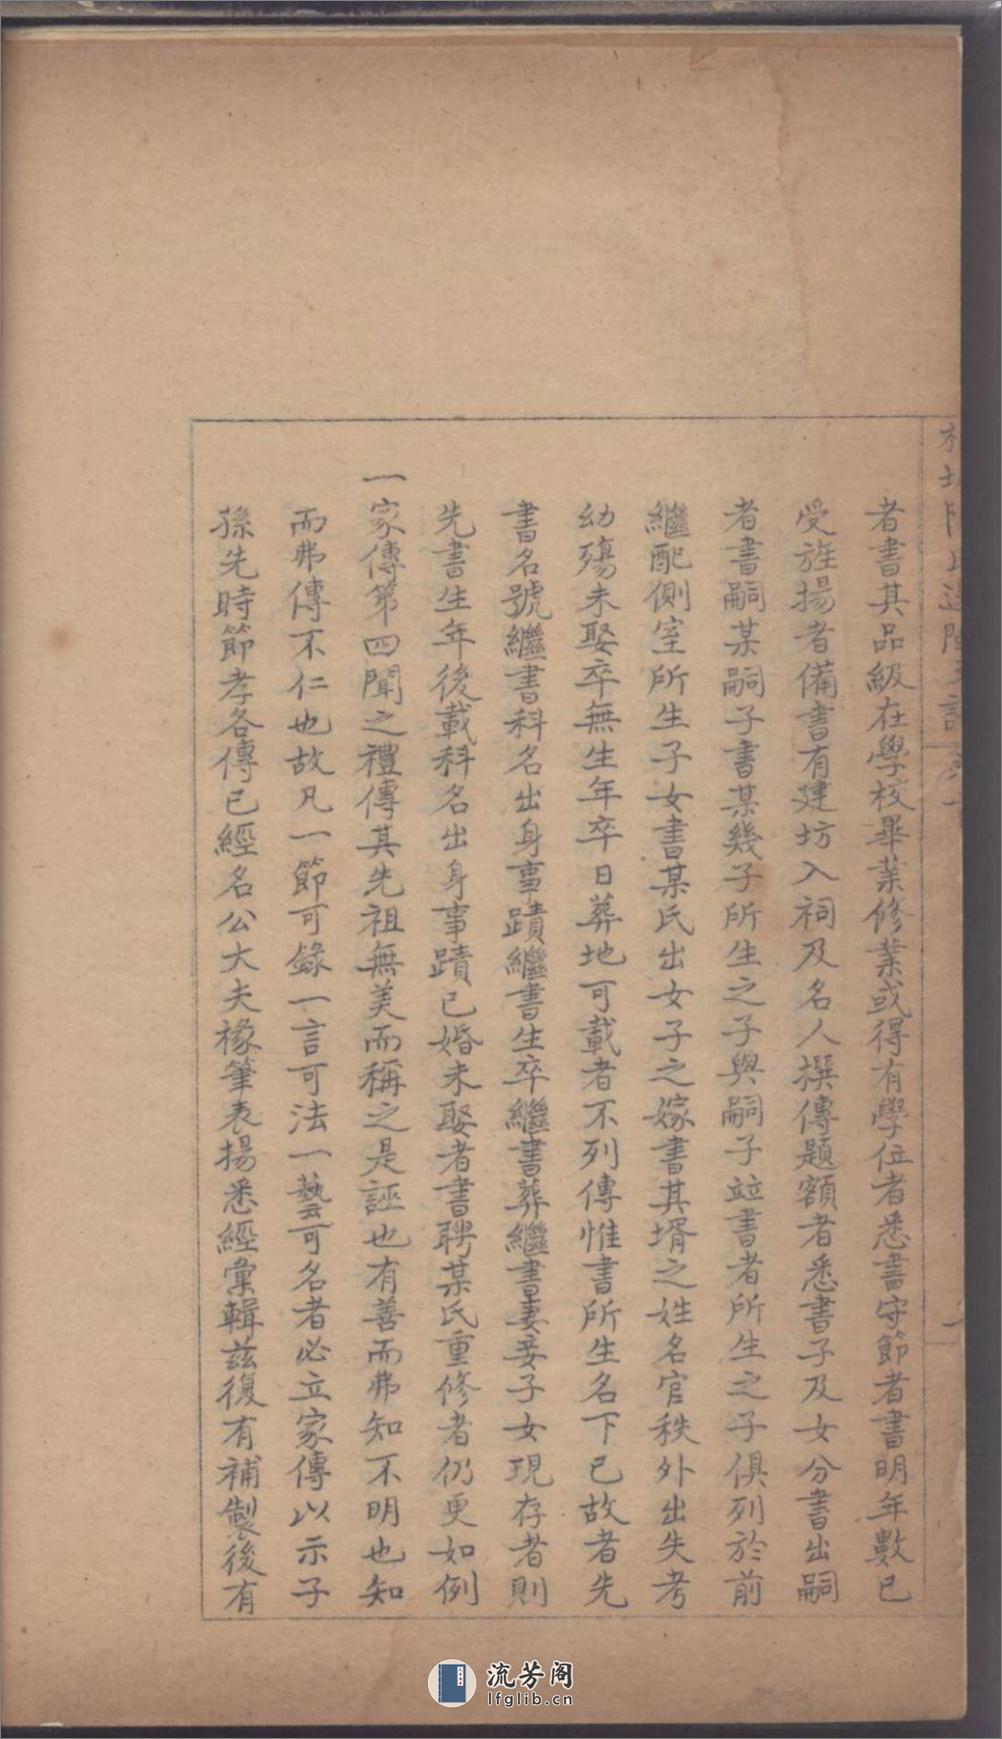 者書其品級在學校畢業修業或得有學位者悉書守節者書明年數已
受旌揚者備書有建坊入祠及名人撰傳題額者悉書子及女分書出嗣
者書嗣某嗣子書某幾子所生之子與嗣子竝書者所生之子俱列於前
繼配側室所生子女書某氏出女子之嫁書其壻之姓名官秩外出失考
幼殤未娶卒無生年卒日葬地可載者不列傳惟書所生名下已故者先
書名號繼書科名出身事蹟繼書生卒繼書葬繼書妻妾子女現存者則
先書生年後載科名出身事蹟已婚未娶者書聘某氏重修者仍更如例
一家傳第四聞之禮傳其先祖無美而稱之是誣也有善而弗知不明也知
而弗傳不仁也故凡一節可錄一言可法一藝可名者必立家傳以示子
孫先時節孝各傳已經名公大夫椽筆表揚悉經彙輯茲復有補製後有
流芳阁
lfglib.cn